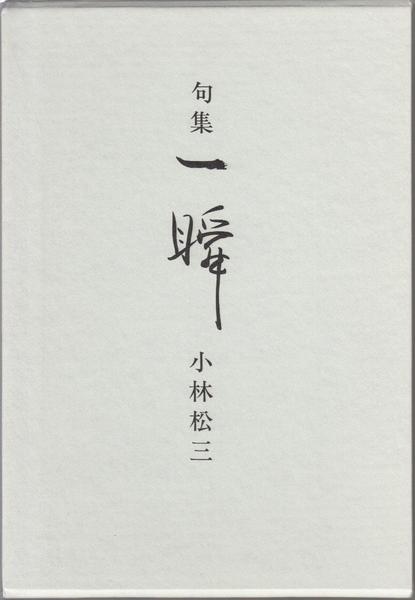 句集 一瞬 小林松三